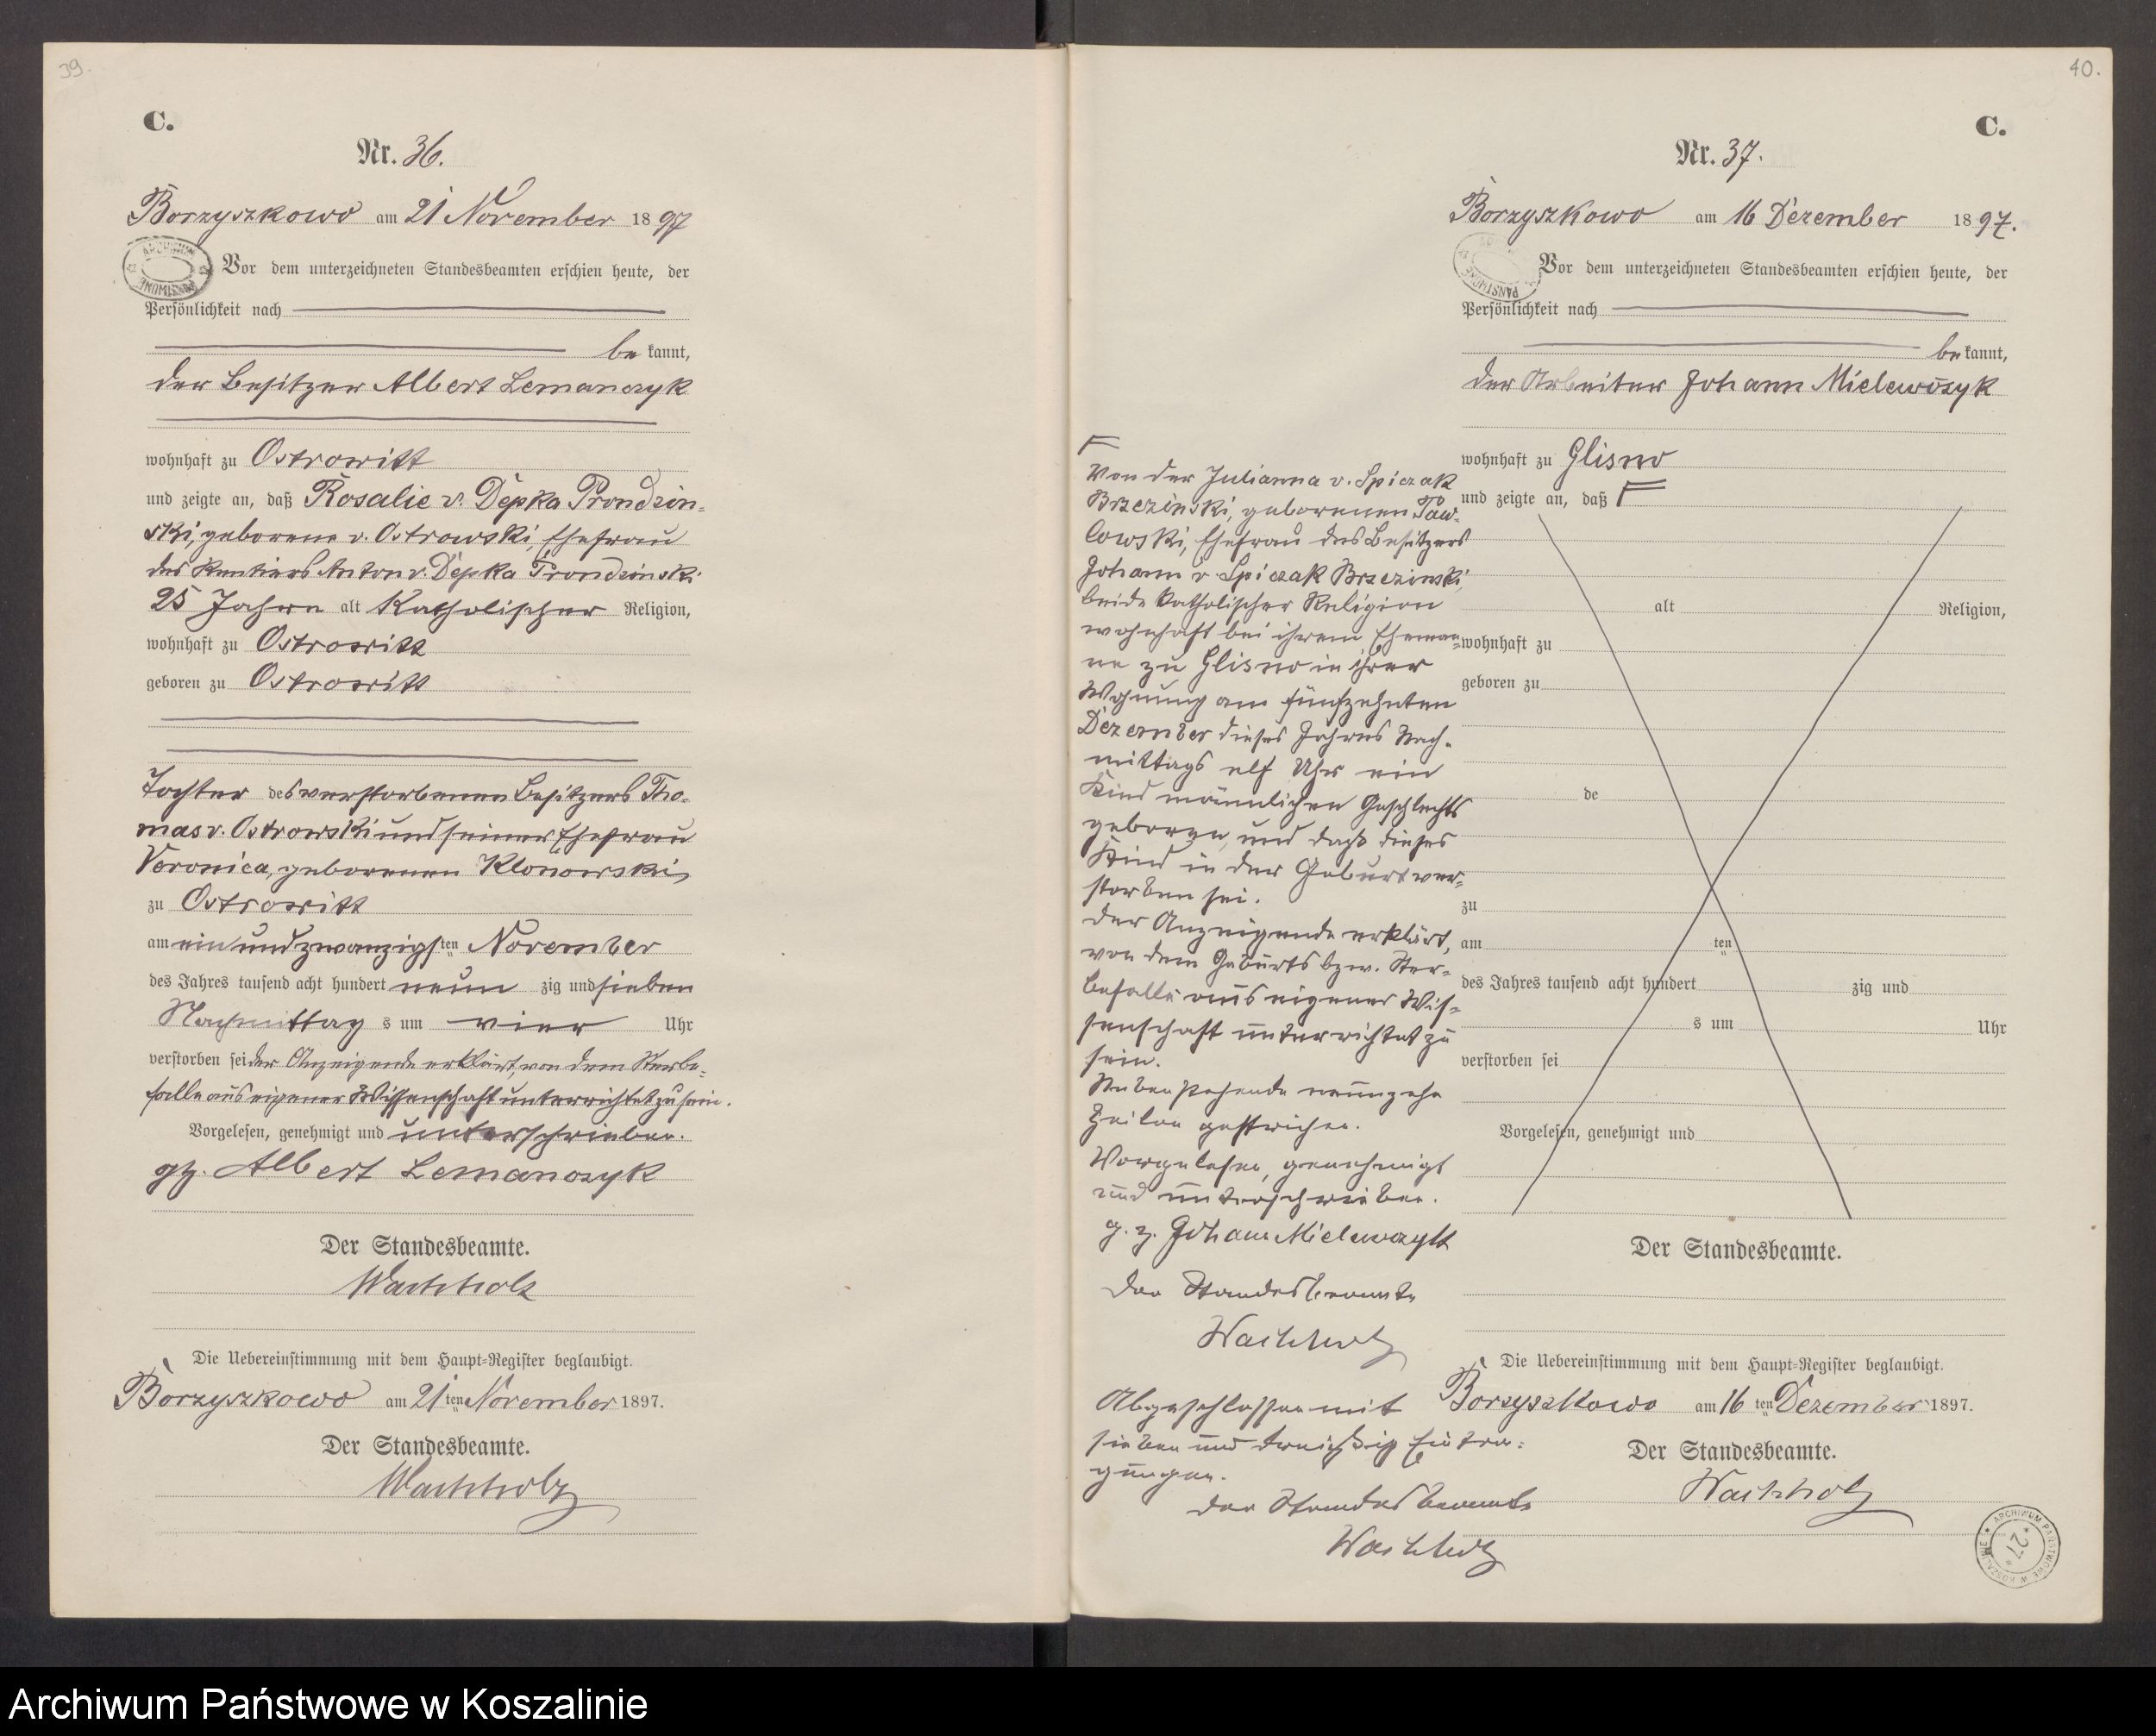 39.
C.
Nr. 36.
Borzyszkowo am 21 November 1897
Vor dem unterzeichneten Standesbeamten erschien heute, der
Persönlichkeit nach
be kannt,
der Besitzer Albert Lemanczyk
wohnhaft zu Ostrowitt
und zeigte an, daß Rosalie v. Depka Prondzin-
ski, geborene v. Ostrowski, Ehefrau
des Rentiers Anton v. Depka Prondzinski
25 Jahre alt Katholischer Religion,
wohnhaft zu Ostrowitt
geboren zu Ostrowitt
Tochter des verstorbenen Besitzers Tho-
mas v. Ostrowski und seiner Ehefrau
Veronica, geborenen Klonowski,
zu Ostrowitt
am ein und zwanzigsten November
des Jahres tausend acht hundert neun zig und sieben
Nachmittag s um vier Uhr
verstorben sei der Anzeigende erklärt, von dem Sterbe-
falle aus eigener Wissenschaft unterrichtet zu sein.
Vorgelesen, genehmigt und unterschrieben.
gz. Albert Lemanczyk
Der Standesbeamte.
Wachholz
Die Uebereinstimmung mit dem Haupt-Register beglaubigt.
Borzyszkowo am 21 ten November 1897.
Der Standesbeamte.
Wachholz
40.
C.
Nr. 37.
Borzyszkowo am 16 Dezember 1897.
Vor dem unterzeichneten Standesbeamten erschien heute, der
Persönlichkeit nach
be kannt,
der Arbeiter Johann Mielewczyk
wohnhaft zu Glisno
und zeigte an, daß
alt Religion,
wohnhaft zu
geboren zu
de
zu
am ten
des Jahres tausend acht hundert zig und
s um Uhr
verstorben sei
Vorgelesen, genehmigt und
Der Standesbeamte.
von der Julianna v. Spiczak
Brzezinski, geborenen Paw-
lowski, Ehefrau des Besitzers
Johann v. Spiczak Brzezinski,
beide katholischer Religion
wohnhaft bei ihrem Eheman-
ne zu Glisno in ihrer
Wohnung am fünfzehnten
Dezember dieses Jahres Nach-
mittags elf Uhr ein
Kind männlichen Geschlechts
geboren, und daß dieses
Kind in der Geburt ver-
storben sei.
Der Anzeigende erklärt,
von dem Geburts bzw. Ster-
befalle aus eigener Wis-
senschaft unterrichtet zu
sein.
Nebenstehende neunzehn
Zeilen gestrichen.
Vorgelesen, genehmigt
und unterschrieben.
g. z. Johann Mielewczyk
Der Standesbeamte
Wachholz
Abgeschlossen mit
sieben und dreißig Eintra-
gungen.
Der Standesbeamte
Wachholz
Die Uebereinstimmung mit dem Haupt-Register beglaubigt.
Borzyszkowo am 16 ten Dezember 1897.
Der Standesbeamte.
Wachholz
ARCHIWUM PAŃSTWOWE W KOSZALINIE
27
Archiwum Państwowe w Koszalinie